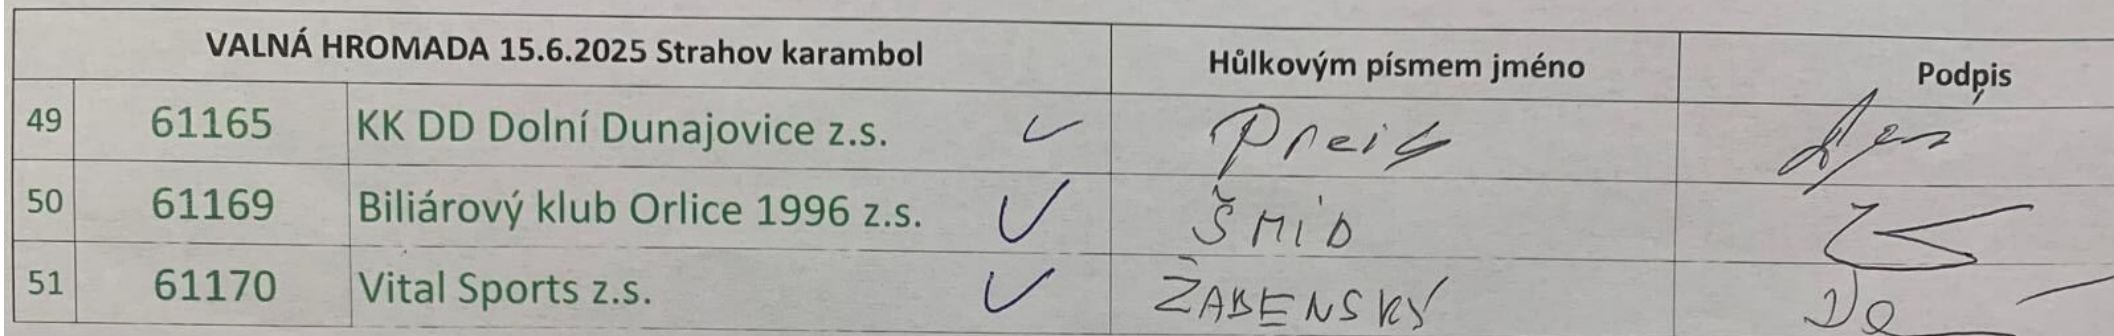 VALNÁ HROMADA 15.6.2025 Strahov karambol Hůlkovým písmem jméno Podpis
49 61165 KK DD Dolní Dunajovice z.s. Preis
50 61169 Biliárový klub Orlice 1996 z.s. ŠMÍD
51 61170 Vital Sports z.s. ŽABENSKÝ